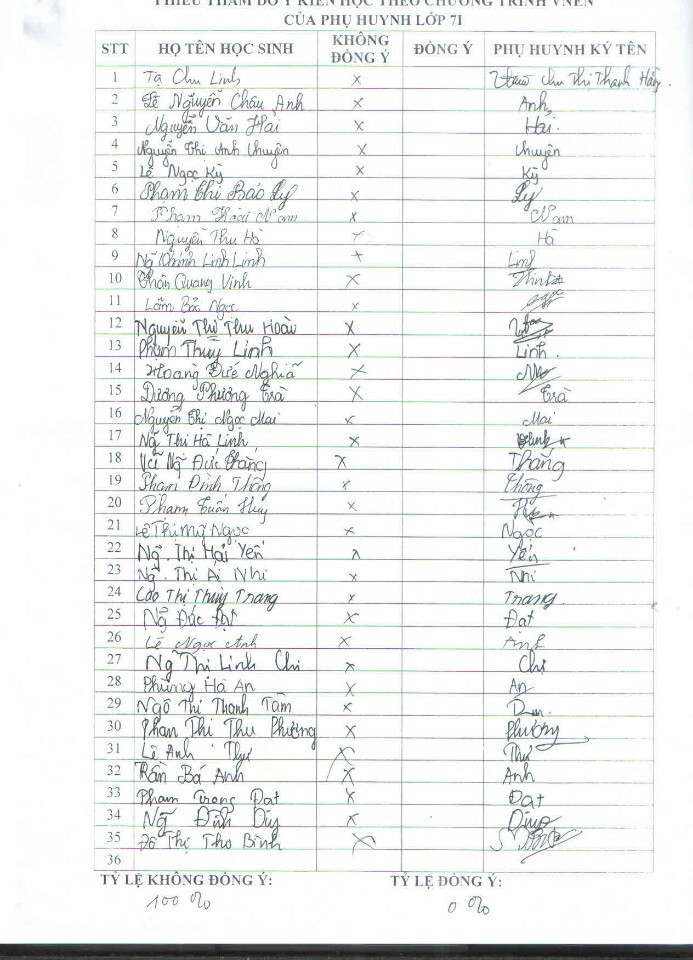 PHIẾU THĂM DÒ Ý KIẾN HỌC THEO CHƯƠNG TRÌNH VNEN
CỦA PHỤ HUYNH LỚP 7I
STT HỌ TÊN HỌC SINH KHÔNG ĐỒNG Ý ĐỒNG Ý PHỤ HUYNH KÝ TÊN
1 Tạ Chu Linh x Chu Thị Thanh Hằng
2 Lê Nguyễn Châu Anh x Anh
3 Nguyễn Văn Hải x Hải
4 Nguyễn Thị Anh Chuyên x Chuyên
5 Lê Ngọc Kỳ x Kỳ
6 Phạm Thị Bảo Ly x Ly
7 Phạm Hoài Nam x Nam
8 Nguyễn Thu Hà x Hà
9 Ng Khánh Linh Linh x Linh
10 Quang Vinh x
11 Lâm Bảo Ngọc x
12 Nguyễn Thị Thu Hoài x
13 Phạm Thùy Linh x Linh
14 Hoàng Đức Nghĩa x
15 Dương Phương Trà x Trà
16 Nguyễn Thị Ngọc Mai x Mai
17 Ng Thị Hà Linh x
18 Ng Đức Thắng x Thắng
19 Phạm Đình Thông x Thông
20 Phạm Tuấn Huy x
21 Lê Thị Mỹ Ngọc x Ngọc
22 Ng. Thị Hải Yến x Yến
23 Ng. Thị Ái Nhi x Nhi
24 Cao Thị Thùy Trang x Trang
25 Ng Đức Đạt x Đạt
26 Lê Ngọc Anh x Anh
27 Ng Thị Linh Chi x Chi
28 Phùng Hà An x An
29 Ngô Thị Thanh Tâm x
30 Phan Thị Thu Phương x Phương
31 Lê Anh Thư x Thư
32 Trần Bá Anh x Anh
33 Phạm Trọng Đạt x Đạt
34 Ng Đình Duy x
35 Đỗ Thị Thơ Bình x
36
TỶ LỆ KHÔNG ĐỒNG Ý: TỶ LỆ ĐỒNG Ý:
100 % 0 %